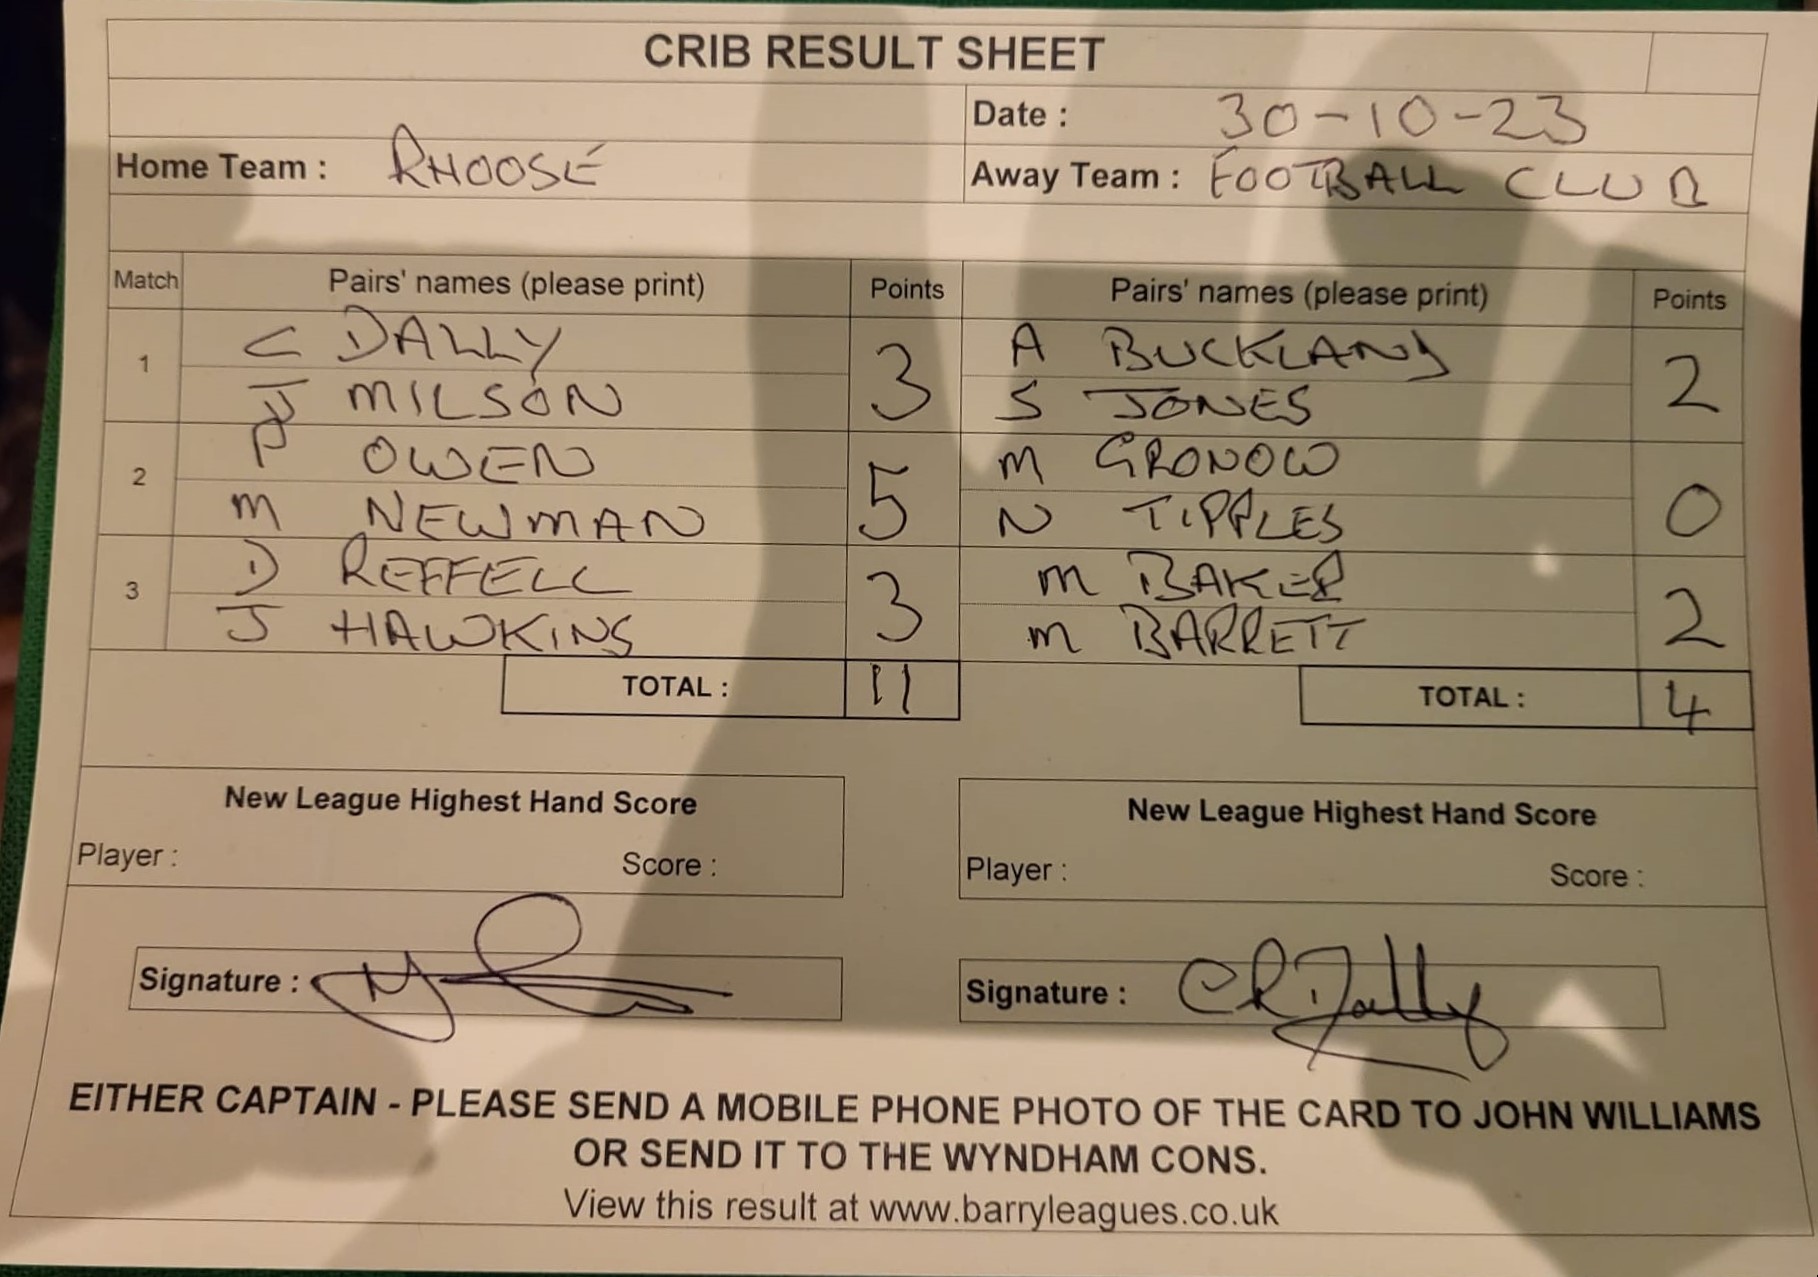 CRIB RESULT SHEET
Date : 30-10-23
Home Team : RHOOSE Away Team : FOOTBALL CLUB
Match Pairs' names (please print) Points Pairs' names (please print) Points
1 C DALLY 3 A BUCKLAND 2
J MILSON S JONES
2 P OWEN 5 M GRONOW 0
M NEWMAN N TIPPLES
3 D REFFELL 3 M BAKER 2
J HAWKINS M BARRETT
TOTAL : 11 TOTAL : 4
New League Highest Hand Score New League Highest Hand Score
Player : Score : Player : Score :
Signature : Signature : CR Dally
EITHER CAPTAIN - PLEASE SEND A MOBILE PHONE PHOTO OF THE CARD TO JOHN WILLIAMS
OR SEND IT TO THE WYNDHAM CONS.
View this result at www.barryleagues.co.uk